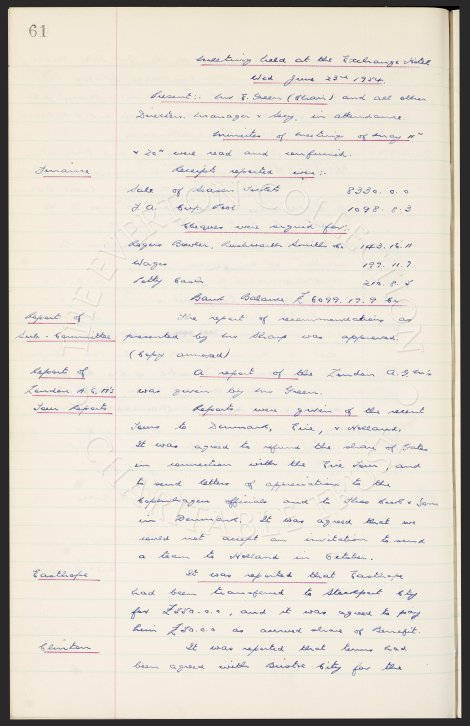 61
Meeting held at the Exchange Hotel
Wed June 23rd 1954
Present:- Mr E. Green (Chair) and all other
Directors, Manager & Secy. in attendance
Minutes of Meetings of May 11th
& 20th were read and confirmed.
Finance Receipts reported were:-
Sale of Season Tickets 8330. 0. 0
F.A. Cup Pool 1098. 8. 3
Cheques were signed for:-
Rogers Bowler, Rushworth Smith &c 143. 16. 11
Wages 199. 11. 7
Petty Cash 210. 8. 8
Bank Balance £6099. 17. 9 Cr
Report of The report of recommendations as
Sub-Committee presented by Mr Sharp was approved
(Copy annexed)
Report of A report of the London A.G.M's
London A.G.M's was given by Mr Green.
Tour Reports Reports were given of the recent
tours to Denmark, Eire, & Holland.
It was agreed to refund the share of Gates
in connection with the Eire Tour, and
to send letters of appreciation to the
Copenhagen officials and to Thos & Sons
in Denmark. It was agreed that we
could not accept an invitation to send
a team to Holland in October.
Easthope It was reported that Easthope
had been transferred to Stockport City
for £550.0.0, and it was agreed to pay
him £50.0.0 as accrued share of Benefit.
Clinton It was reported that terms had
been agreed with Bristol City for the
THE EVERTON COLLECTION
CHARITABLE TRUST